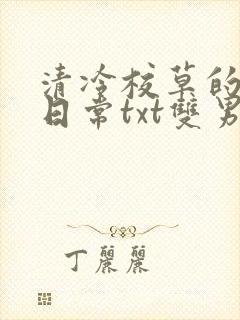 清冷校草的
日常txt雙男
丁麗麗